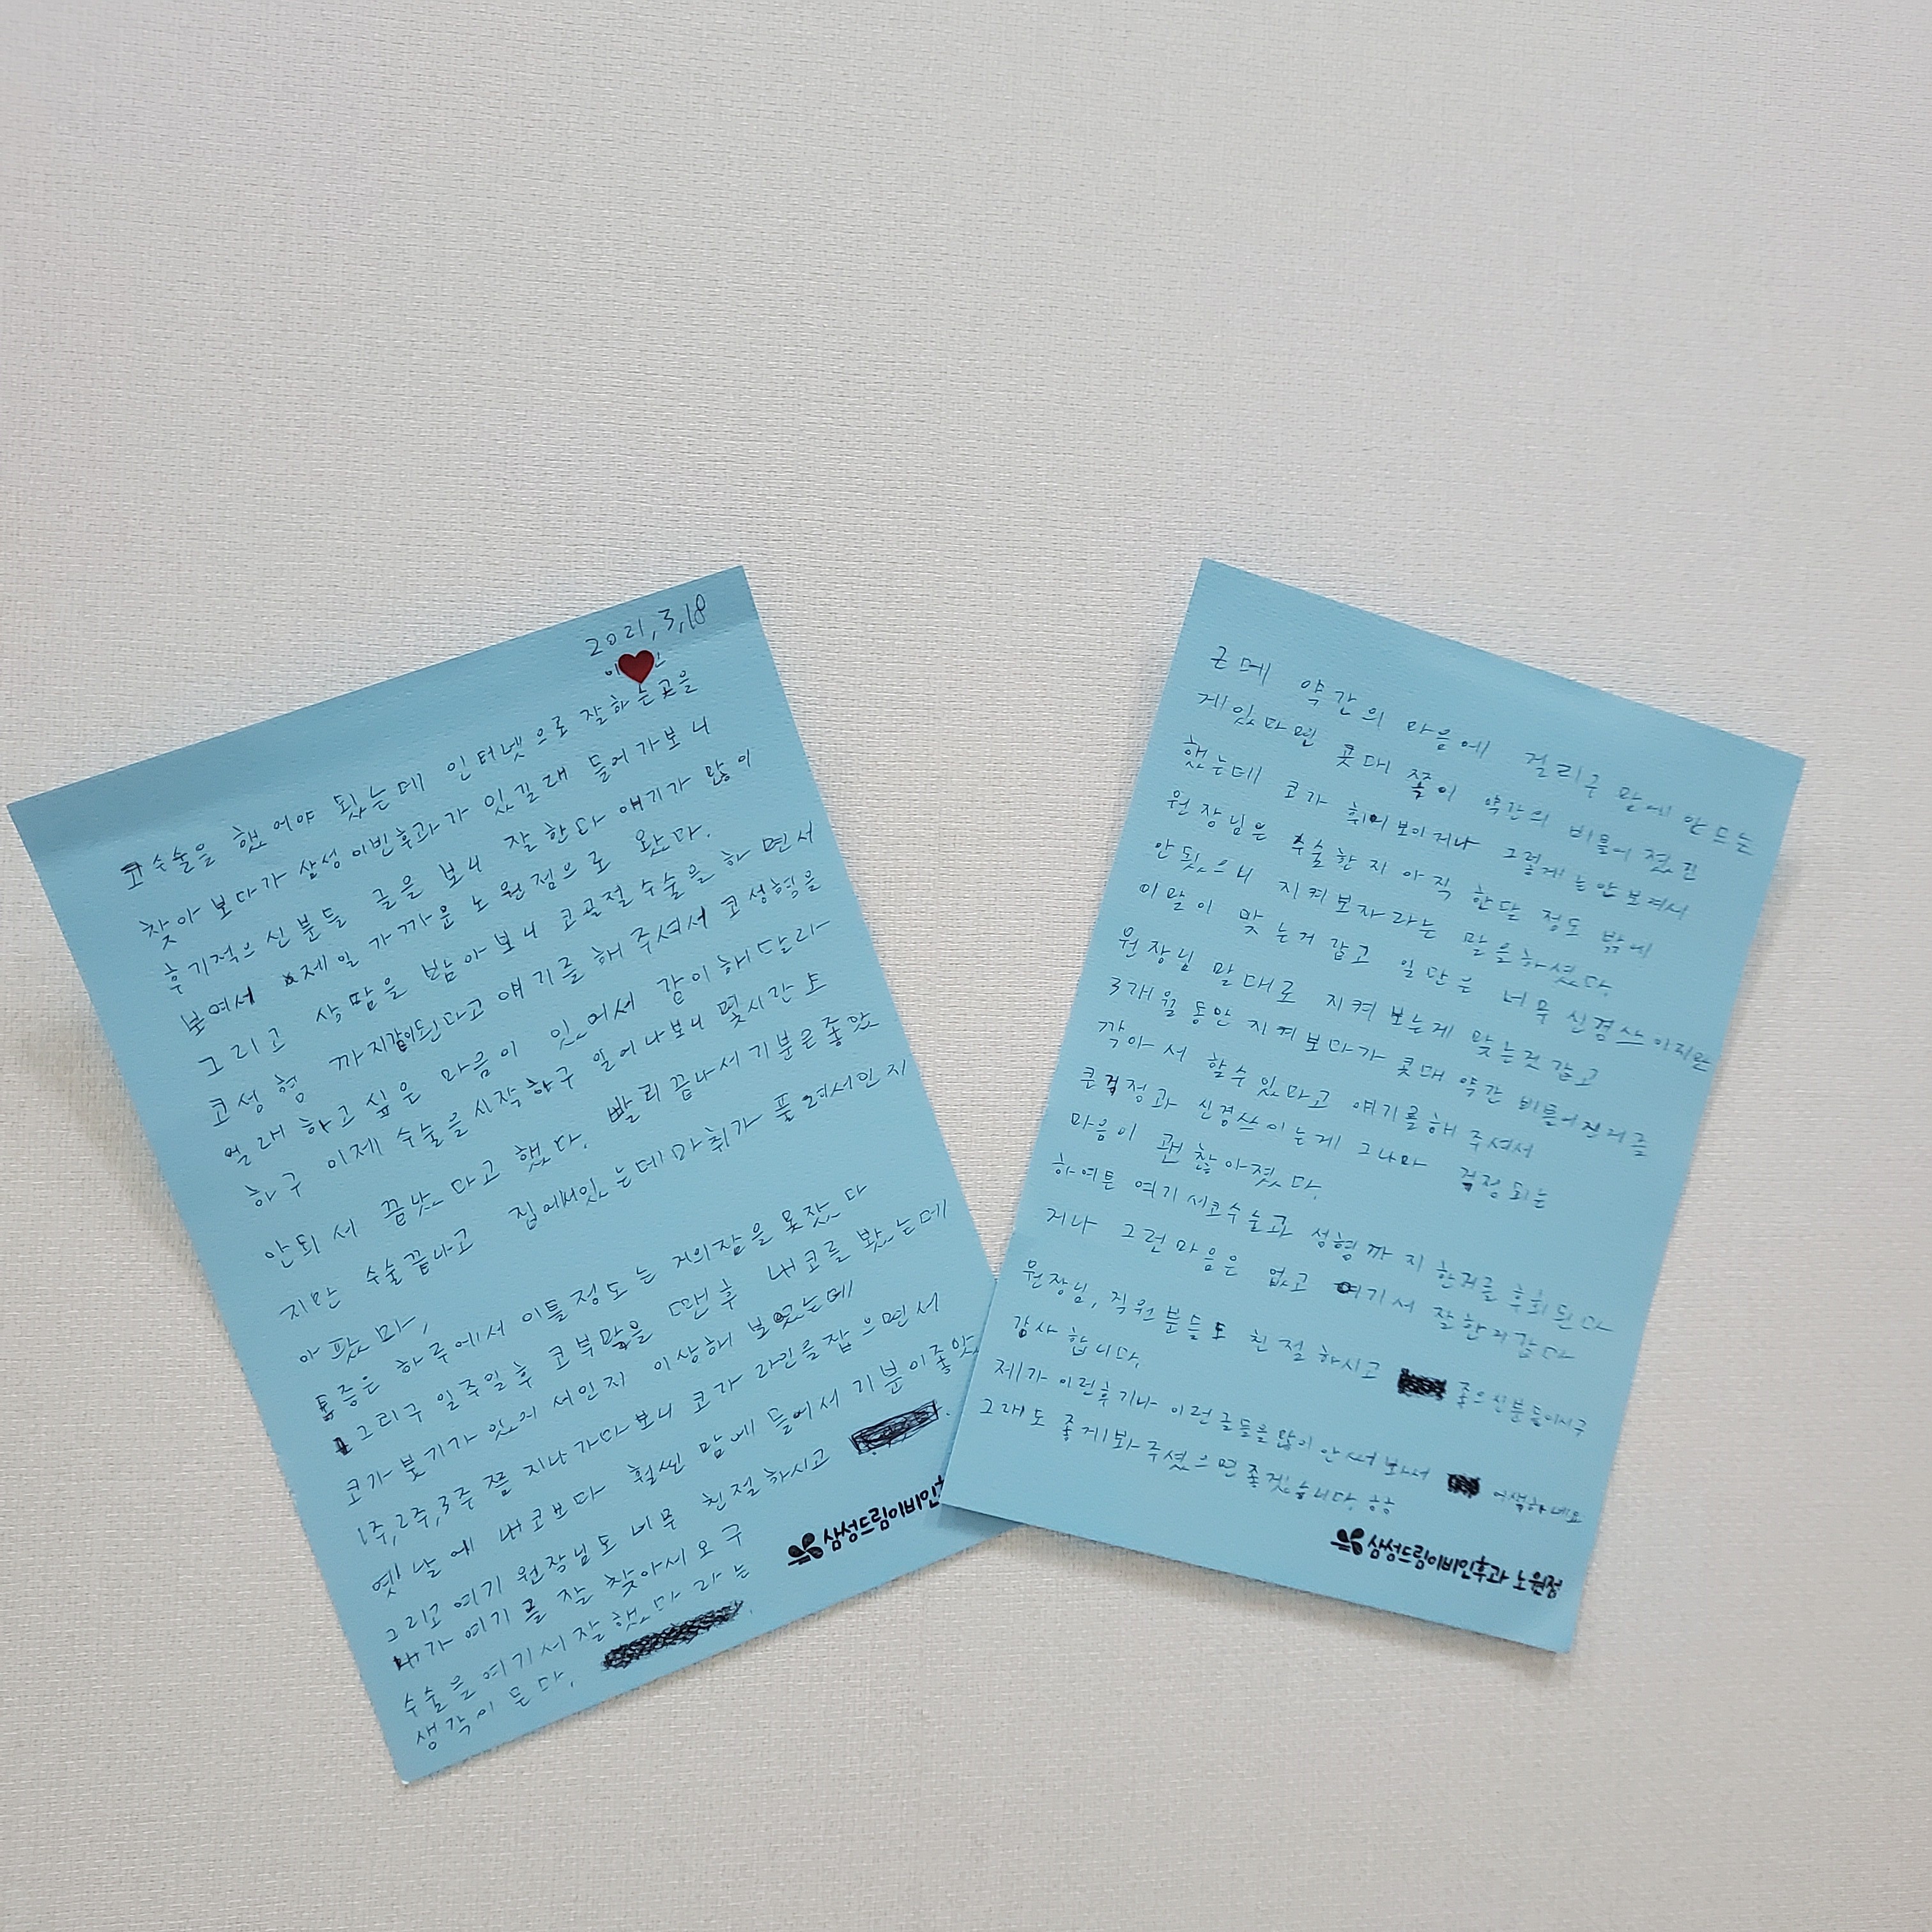 2021, 3, 18
코수술을 했어야 됬는데 인터넷으로 잘하는곳을
찾아보다가 삼성이빈후과가 있길래 들어가보니
후기적으신분들 글을 보니 잘한다 얘기가 많이
보여서 제일 가까운 노원점으로 왔다.
그리고 상담을 받아보니 코골절수술을 하면서
코성형 까지같이된다고 얘기를 해주셔서 코성형을
원래 하고싶은 마음이 있어서 같이해달라
하구 이제 수술을시작하구 일어나보니 몇시간도
안되서 끝났다고 했다. 빨리끝나서 기분은좋았
지만 수술끝나고 집에서있는데마취가 풀려서인지
아팠다,
통증은 하루에서 이틀정도는 거의잠을못잤다
그리구 일주일후 코부목을 땐후 내코를 봤는데
코가붓기가 있어서인지 이상해 보였는데
1주,2주,3주 쯤 지나가다보니 코가 라인을잡으면서
옛날에 내코보다 훨씬 맘에 들어서 기분이좋았
그리고 여기 원장님도 너무 친절하시고
내가 여기를 잘 찾아서오구
수술을 여기서잘했다 라는
생각이 든다.
삼성드림이비인후
근데 약간의 마음에 걸리구 맘에안드는
게있다면 콧대 쪽이 약간의 비틀어졌긴
했는데 코가 휘어보이거나 그렇게는안보여서
원장님은 수술한지 아직 한달 정도 밖에
안됬으니 지켜보자라는 말을하셨다.
이말이 맞는거 같고 일단은 너무 신경쓰이지만
원장님 말대로 지켜보는게 맞는것같고
3개월동안 지켜보다가 콧대 약간 비틀어진거를
깍아서 할수있다고 얘기를해주셔서
큰걱정과 신경쓰이는게 그나마 걱정되는
마음이 괜찮아졌다.
하여튼 여기서코수술과 성형까지한거를 후회된다
거나 그런마음은 없고 여기서 잘한거같다
원장님, 직원분들도 친절하시고 좋으신분들이시구
감사합니다.
제가 이런후기나 이런글들을많이 안써봐서 어색하네요
그래도 좋게봐주셨으면좋겠습니다. ㅎㅎ
삼성드림이비인후과 노원점